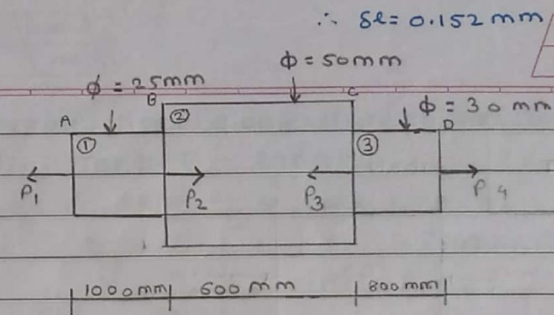 ∴ δl = 0.152 mm
ϕ = 50mm
ϕ = 25mm
B
C
ϕ = 30 mm
A
D
①
②
③
P1
P2
P3
P4
1000mm
600 mm
800mm